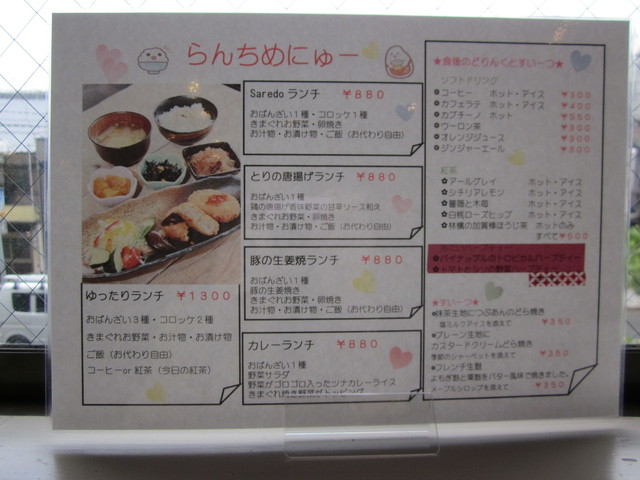 らんちめにゅー
ゆったりランチ ￥1300
おばんざい3種・コロッケ2種
きまぐれお野菜・お汁物・お漬け物
ご飯（お代わり自由）
コーヒーor 紅茶（今日の紅茶）
Saredo ランチ ￥880
おばんざい1種・コロッケ1種
きまぐれお野菜・卵焼き
お汁物・お漬け物・ご飯（お代わり自由）
とりの唐揚げランチ ￥880
おばんざい1種
鶏の唐揚げ香味野菜の甘辛ソース和え
きまぐれお野菜・卵焼き
お汁物・お漬け物・ご飯（お代わり自由）
豚の生姜焼ランチ ￥880
おばんざい1種
豚の生姜焼き
きまぐれお野菜・卵焼き
お汁物・お漬け物・ご飯（お代わり自由）
カレーランチ ￥880
おばんざい1種
野菜サラダ
野菜がゴロゴロ入ったツナカレーライス
きまぐれ焼き野菜がトッピング
★食後のどりんくとすいーつ★
ソフトドリンク
コーヒー ホット・アイス
カフェラテ ホット・アイス ￥400
カプチーノ ホット
ウーロン茶
オレンジジュース
ジンジャーエール
紅茶
アールグレイ ホット・アイス
シチリアレモン ホット・アイス
薔薇と木苺 ホット・アイス
白桃ローズヒップ ホット・アイス
林檎の加賀棒ほうじ茶 ホットのみ
すべて￥500
パイナップルのトロピカルハーブティー
★すいーつ★
抹茶生地につぶあんのどら焼き
塩ミルクアイスを添えて ￥350
プレーン生地に
カスタードクリームどら焼き
季節のシャーベットを添えて ￥350
フレンチ生麩
よもぎ麩と粟麩をバター風味で焼きました。
メープルシロップを添えて ￥350